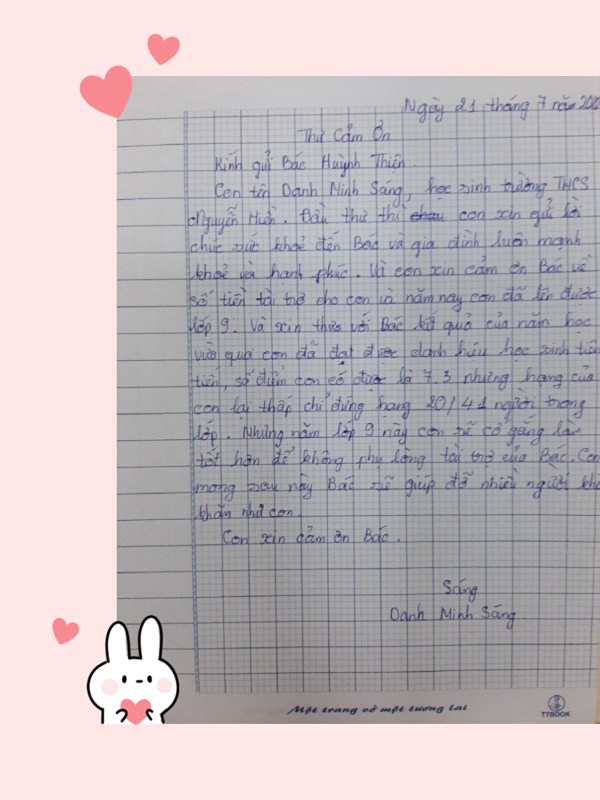 Ngày 21 tháng 7 năm
Thư Cảm Ơn
Kính gửi Bác Huỳnh Thiện.
Con tên Danh Minh Sáng, học sinh trường THCS
Nguyễn Hiền. Đầu thư thì cháu con xin gửi lời
chúc sức khoẻ đến Bác và gia đình luôn mạnh
khoẻ và hạnh phúc. Và con xin cảm ơn Bác về
số tiền tài trợ cho con và năm nay con đã lên được
lớp 9. Và xin thưa với Bác kết quả của năm học
vừa qua con đã đạt được danh hiệu học sinh tiên
tiến, số điểm con có được là 7.3 nhưng hạng của
con lại thấp chỉ đứng hạng 20/41 người trong
lớp. Nhưng năm lớp 9 này con sẽ cố gắng làm
tốt hơn để không phụ lòng tài trợ của Bác. Con
mong sau này Bác sẽ giúp đỡ nhiều người khó
khăn như con.
Con xin cảm ơn Bác.
Sáng
Danh Minh Sáng
Một trang vở một tương lai
TTBOOK